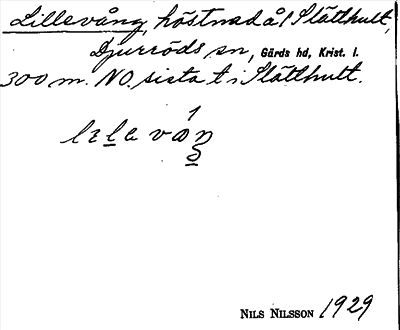 Lillevång, höstnad å l Slätthult,
Djurröds sn, Gärds hd, Krist. l.
300 m. NO. sista t i Slätthult.
1
NILS NILSSON 1929